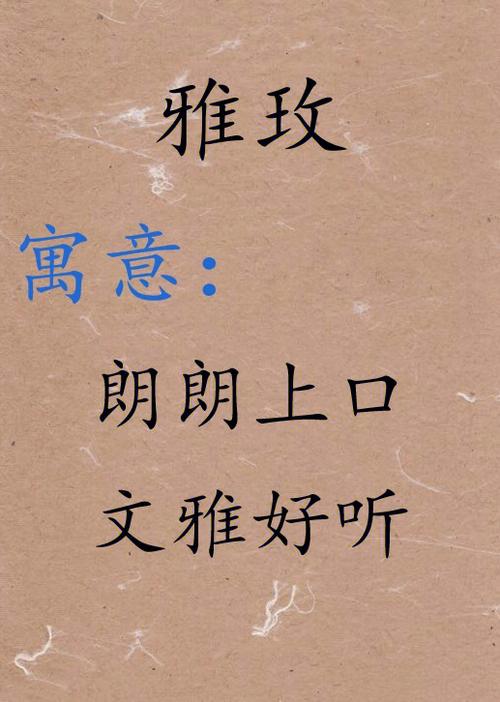 雅玫
寓意：
朗朗上口
文雅好听